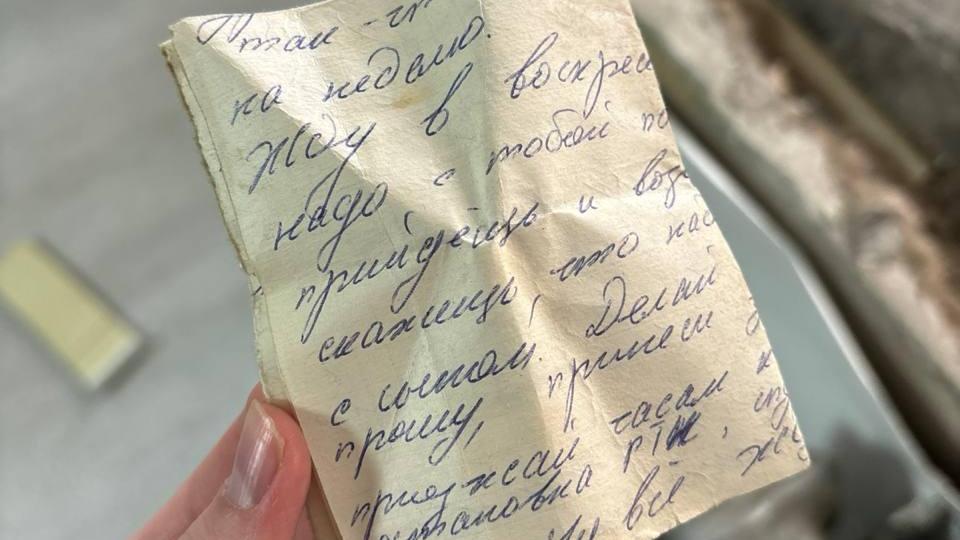 так -
на неделю.
Жду в воскрес
надо с тобой по
прийдёшь и воз
скажешь, что над
с сыном. Делай
прошу, принеси
приезжай часам к
остановка РТЖ,
Ну всё жд